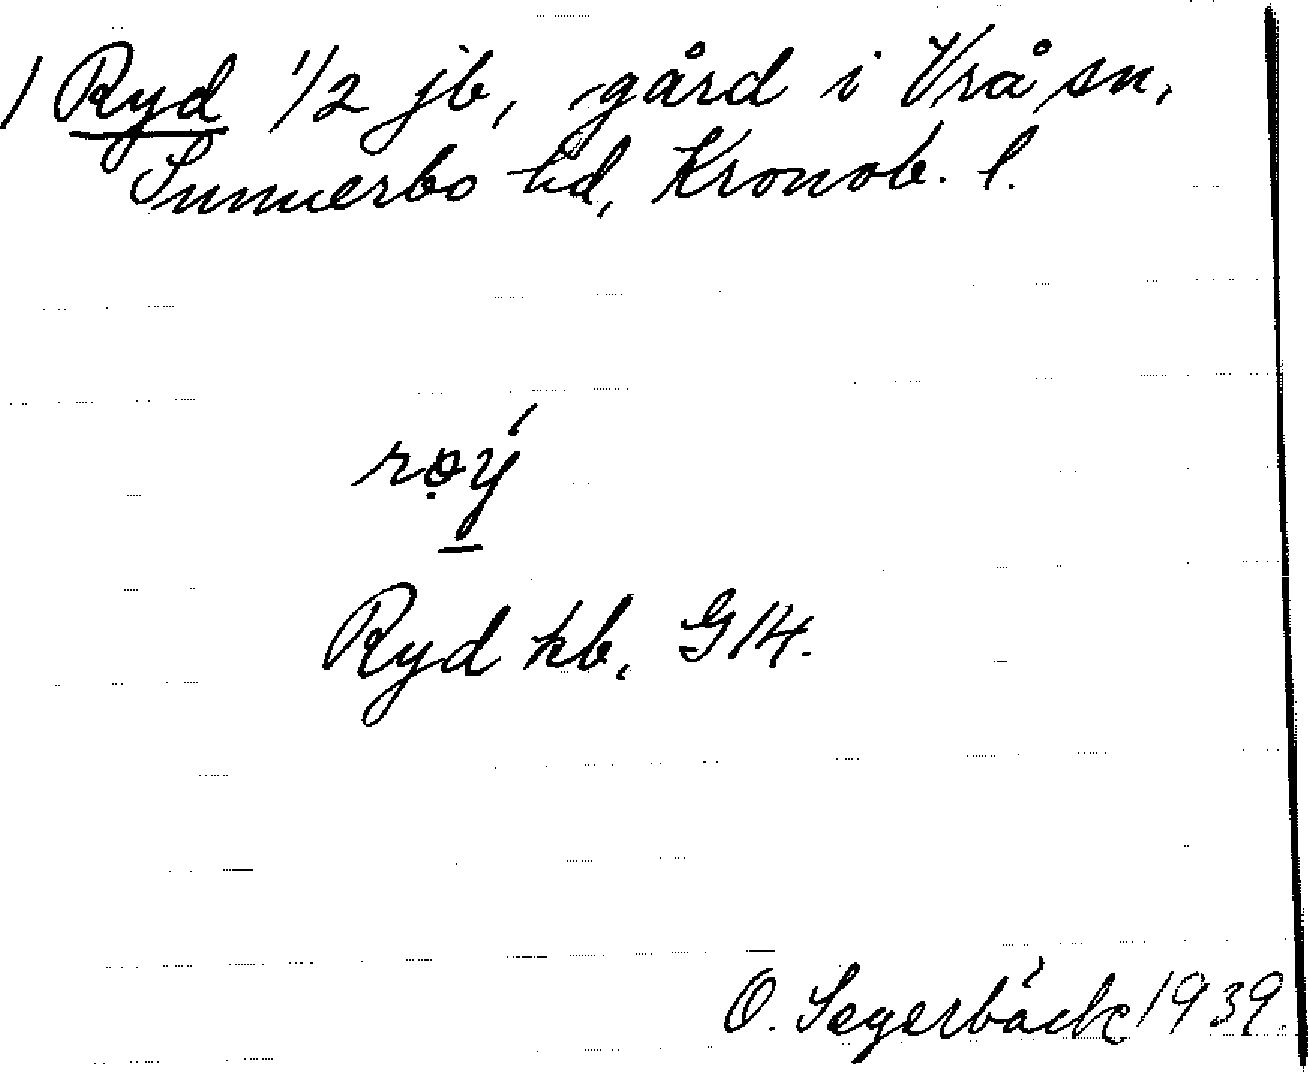 / Ryd 1/2 jb, gård i Vrå sn,
Sunnerbo hd, Kronob. l.
rø̣ý
Ryd kb. G14.
O. Segerbäck 1939.